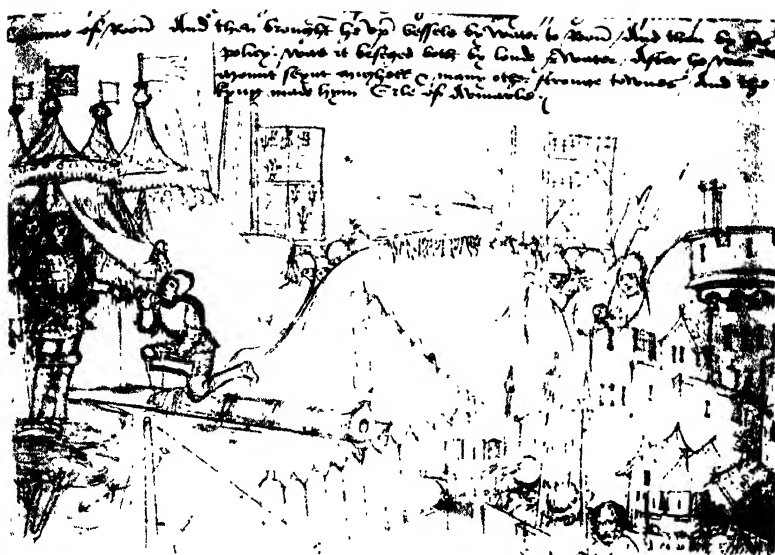 of Roon And then brought he up vessels by water to Roon And then by his
policy was it beseged both by londe & water After he wan
mount seynt mighell & many other stronge townes And the
kyng made hym Erle of Aumarle